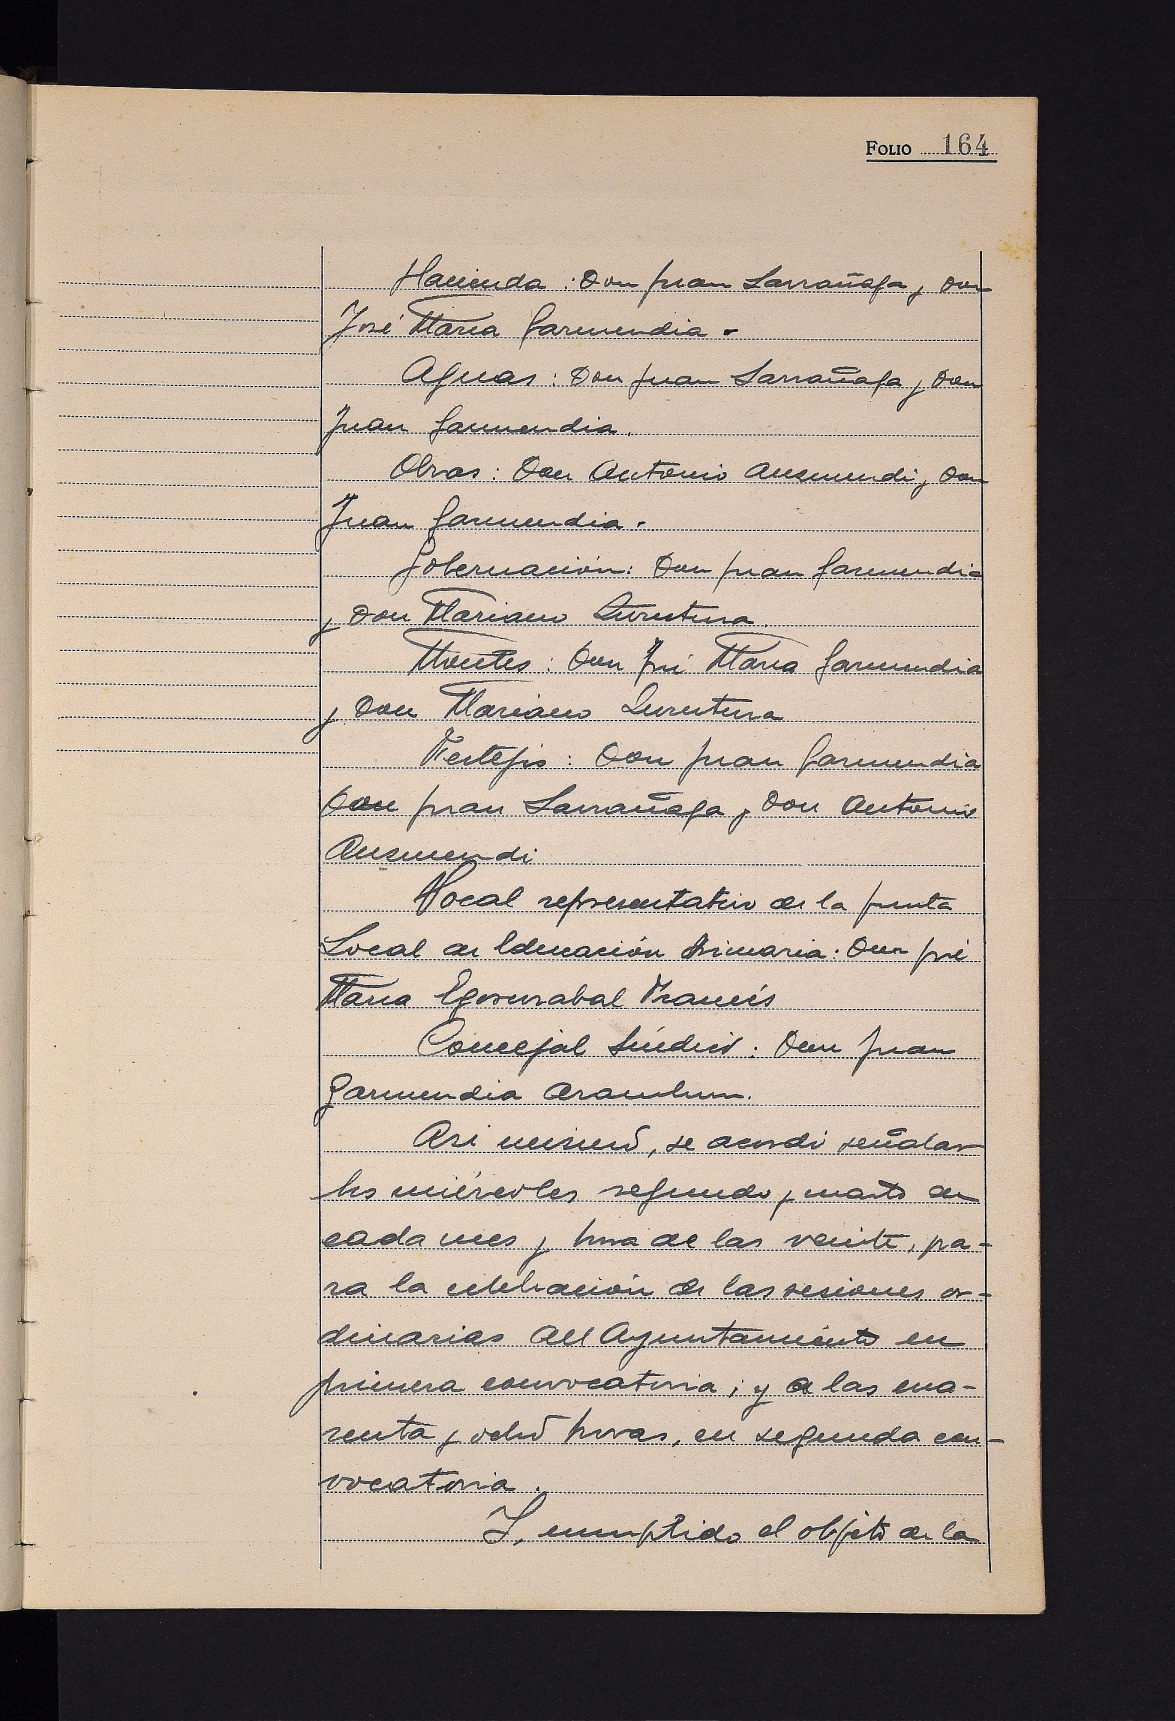 FOLIO 164
Hacienda: Don Juan Larrañaga y Don
José Maria Garmendia.
Aguas: Don Juan Larrañaga y Don
Juan Garmendia.
Obras: Don Antonio Auzmendi y Don
Juan Garmendia.
Gobernación: Don Juan Garmendia
y Don Mariano
Montes: Don José Maria Garmendia
y Don Mariano
Festejos: Don Juan Garmendia
Don Juan Larrañaga y Don Antonio
Auzmendi
Vocal representativo de la Junta
Local de Educación Primaria: Don José
Maria Egoscozabal Francés
Concejal Síndico: Don Juan
Garmendia Aramburu.
Asi mismo, se acordó señalar
los miércoles segundo y cuarto de
cada mes y hora de las veinte, pa-
ra la celebración de las sesiones or-
dinarias del Ayuntamiento en
primera convocatoria; y a las cua-
renta y ocho horas, en segunda con-
vocatoria.
Y, cumplido el objeto de la